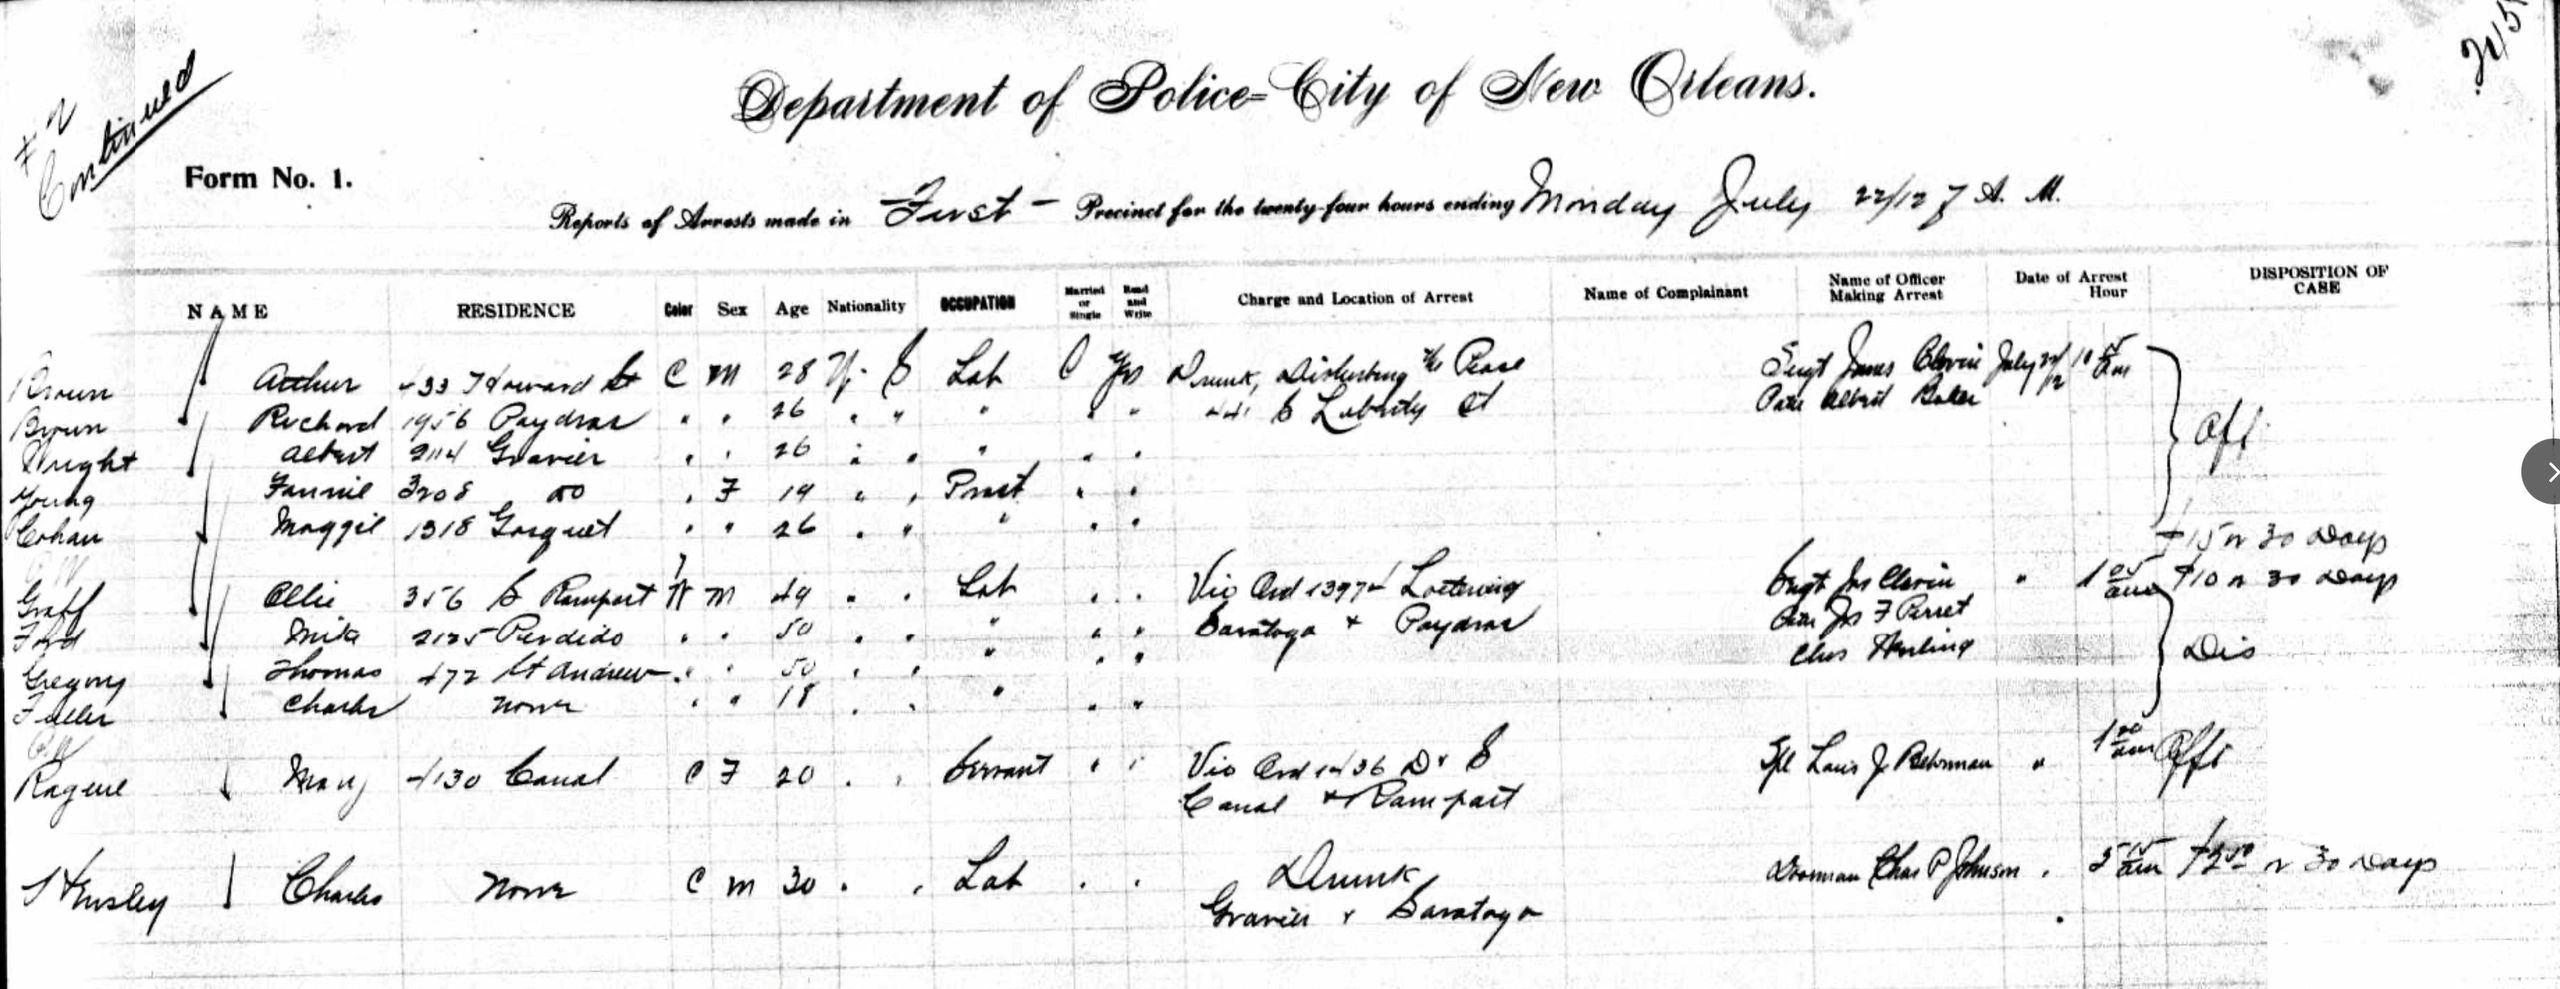 #2
Continued
Department of Police=City of New Orleans.
Form No. 1.
Reports of Arrests made in First Precinct for the twenty-four hours ending Monday July 22/12 7 A. M.
NAME RESIDENCE Color Sex Age Nationality OCCUPATION Married or Single Read and Write Charge and Location of Arrest Name of Complainant Name of Officer Making Arrest Date of Arrest Hour DISPOSITION OF CASE
Brown Arthur 433 Howard St C M 28 Lab Yes Drunk, Disturbing the Pease Sergt James Clevin July 22/12
Brown Richard 1956 Poydras " " 26 " " " " " 441 S Liberty St Patn Albert Baker
Wright Albert 2114 Gravier " " 26 " " " " " Aff
Young Fannie 3208 do " F 19 " " Prost " "
Cohan Maggie 1318 Gasquet " " 26 " " " " " $15 or 30 Days
Graff Ollie 356 S Rampart W M 49 " " Lab " " Vio Ord 13974 Loetering Sergt Jas Clevin " 1 05 am $10 or 30 Days
Ford Mike 2125 Perdido " " 50 " " " " " Saratoga + Poydras Patn Jos F Perret
Gregory Thomas 472 St Andrew " " 50 " " " " " Chas Dis
Fuller Charles None " " 18 " " " " "
Mary 4130 Canal C F 20 " " Servant " " Vio Ord 1436 D + S Spl Louis J " 1 20 am Aff
Canal + Rampart
Charles None C M 30 " " Lab " " Drunk Doorman Chas P Johnson " 5 15 am $2 50 or 30 Days
Gravier + Saratoga